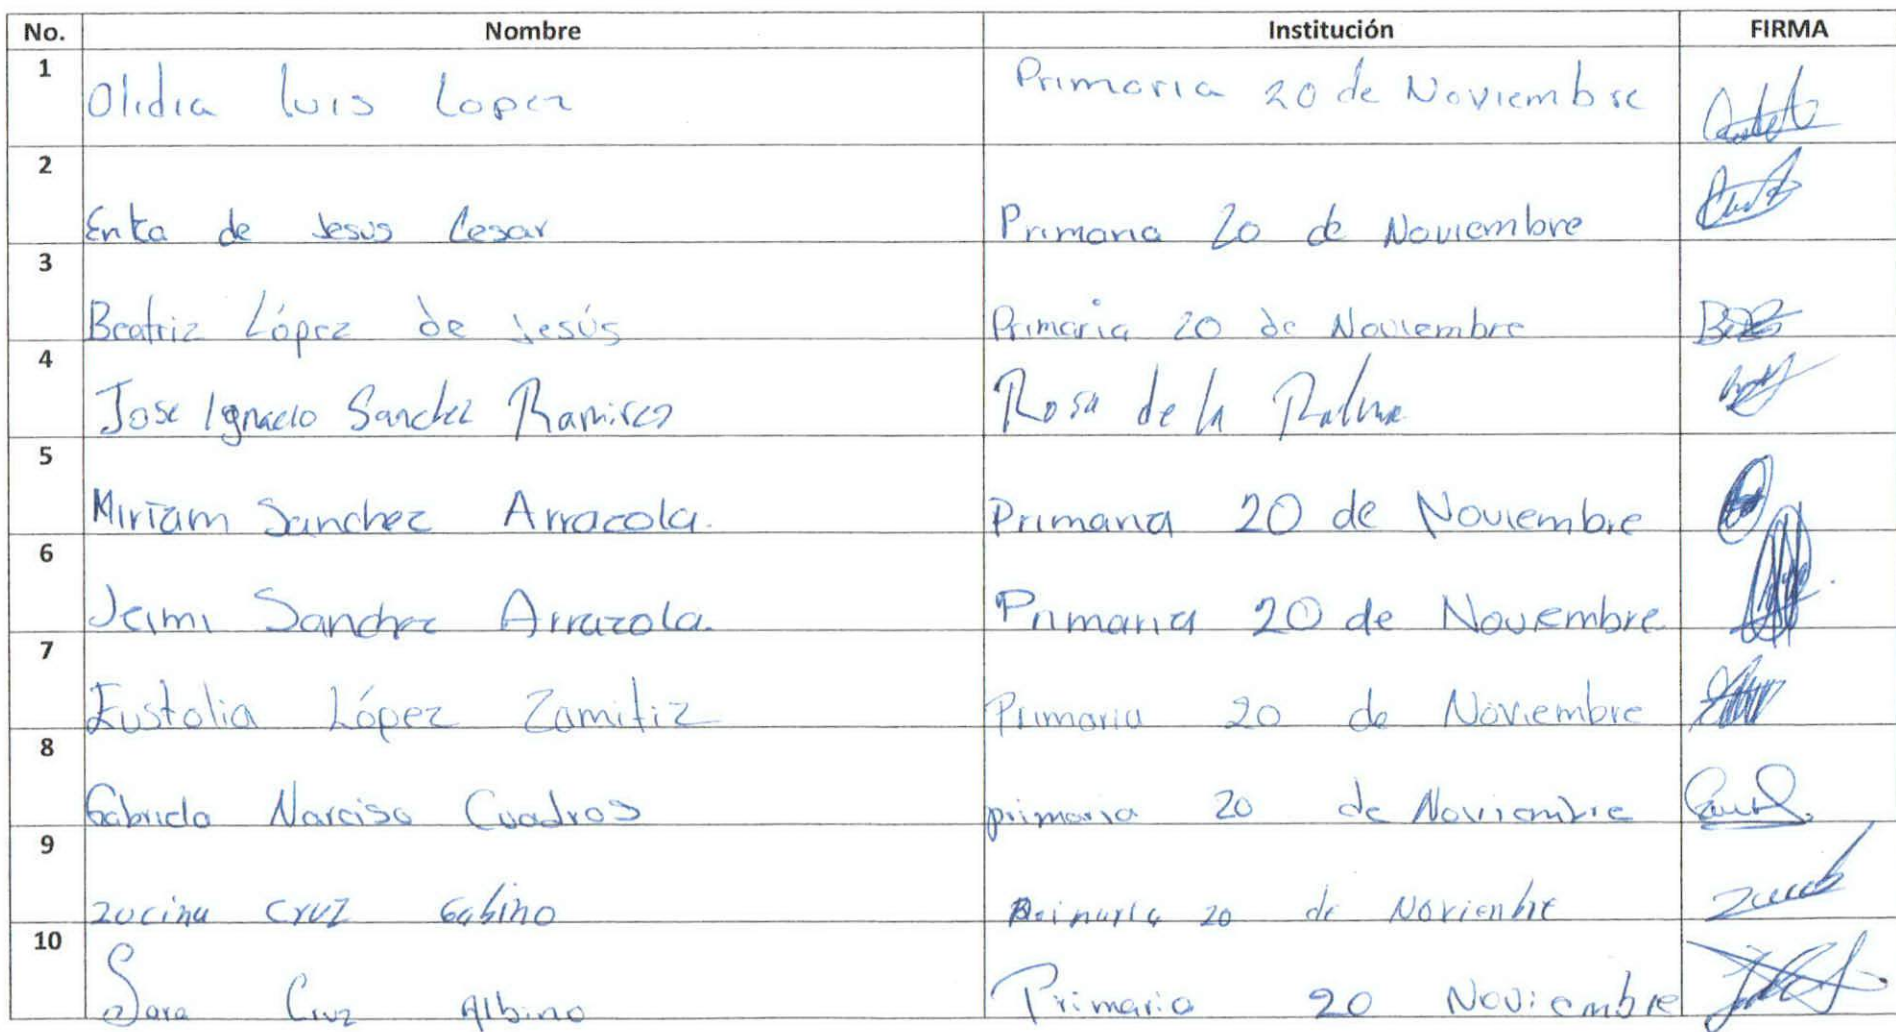 No. Nombre Institución FIRMA
1 Olidia Luis Lopez Primaria 20 de Noviembre
2 Erika de Jesus Cesar Primaria 20 de Noviembre
3 Beatriz López de Jesús Primaria 20 de Noviembre
4 Jose Ignacio Sanchez Ramirez Rosa de la Palma
5 Miriam Sanchez Arracola. Primaria 20 de Noviembre
6 Jeimi Sanchez Arrazola. Primaria 20 de Noviembre
7 Eustolia López Zamitiz Primaria 20 de Noviembre
8 Gabriela Narciso Cuadros primaria 20 de Noviembre
9 zucina cruz Gabino 20 de Novienbre
10 Sara Cruz Albino Primaria 20 Noviembre